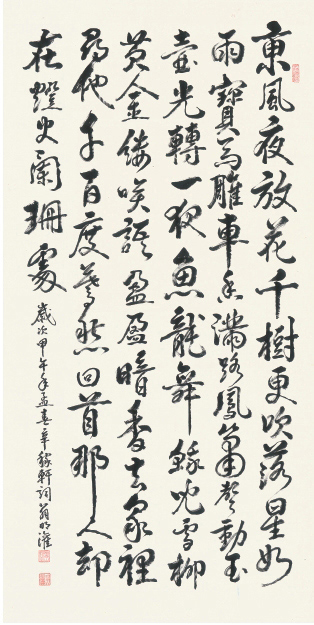 東風夜放花千樹更吹落星如
雨寶馬雕車香滿路鳳簫聲動玉
壺光轉一夜魚龍舞蛾兒雪柳
黃金縷笑語盈盈暗香去眾裡
尋他千百度驀然回首那人却
在燈火闌珊處
歲次甲午年孟春辛稼軒詞翁明